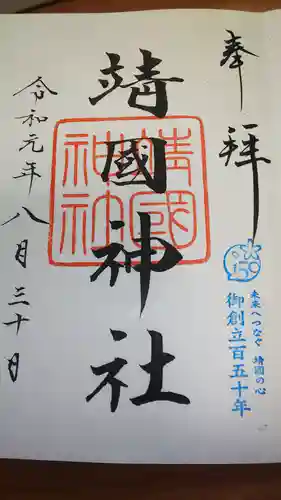 奉拝
159
未来へつなぐ 靖國の心
御創立百五十年
靖國神社
靖國
神社
令和元年八月三十日